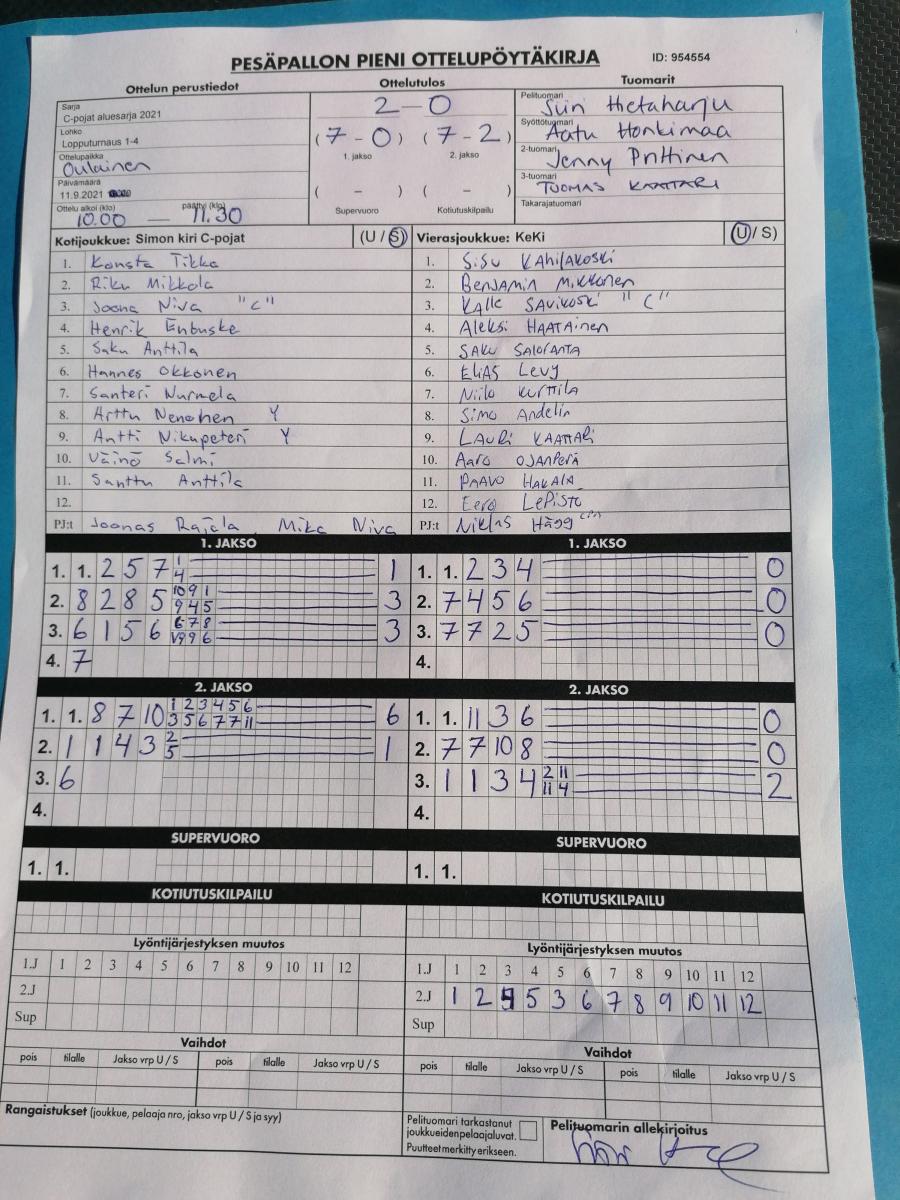 PESÄPALLON PIENI OTTELUPÖYTÄKIRJA
ID: 954554
Ottelun perustiedot
Ottelutulos
Tuomarit
Sarja
C-pojat aluesarja 2021
Lohko
Lopputurnaus 1-4
Ottelupaikka
Oulainen
Päivämäärä
11.9.2021
Ottelu alkoi (klo) 10.00 — päättyi (klo) 11.30
2 - 0
( 7 - 0 ) ( 7 - 2 )
1. jakso 2. jakso
( - ) ( - )
Supervuoro Kotiutuskilpailu
Pelituomari
Siiri Hietaharju
Syöttötuomari
Aatu Honkimaa
2-tuomari
Jenny Pnttinen
3-tuomari
TUOMAS KAATTARI
Takarajatuomari
Kotijoukkue: Simon kiri C-pojat (U / S)
1. Konsta Tikka
2. Riku Mikkola
3. Joona Niva "C"
4. Henrik Enbuske
5. Saku Anttila
6. Hannes Okkonen
7. Santeri Nurmela
8. Arttu Nenonen Y
9. Antti Nikupeteri Y
10. Väinö Salmi
11. Santtu Anttila
12.
PJ:t Joonas Rajala, Mika Niva
Vierasjoukkue: KeKi (U / S)
1. SiSU KAHILAKOSKi
2. BenJAMiN MiKKonen
3. KAlle SAViKOSKi "C"
4. AleKSi HAATAinen
5. SAKU SALORANTA
6. EliAS LeVy
7. Niilo KURTTiLA
8. Simo Andelin
9. LAURi KAATTARi
10. AARO OJANPERÄ
11. PAAVO HAKALA
12. Eero LePiSTö
PJ:t NiKlAS Hägg
1. JAKSO
1. 1. 2 5 7 1 1
4
2. 8 2 8 5 10 9 1 3
9 4 5
3. 6 1 5 6 6 7 8 3
V9 9 6
4. 7
1. JAKSO
1. 1. 2 3 4 0
2. 7 4 5 6 0
3. 7 7 2 5 0
4.
2. JAKSO
1. 1. 8 7 10 1 2 3 4 5 6 6
3 5 6 7 7 11
2. 1 1 4 3 2 1
5
3. 6
4.
2. JAKSO
1. 1. 11 3 6 0
2. 7 7 10 8 0
3. 1 1 3 4 2 11 2
11 4
4.
SUPERVUORO
1. 1.
SUPERVUORO
1. 1.
KOTIUTUSKILPAILU
KOTIUTUSKILPAILU
Lyöntijärjestyksen muutos
1.J 1 2 3 4 5 6 7 8 9 10 11 12
2.J
Sup
Lyöntijärjestyksen muutos
1.J 1 2 3 4 5 6 7 8 9 10 11 12
2.J 1 2 4 5 3 6 7 8 9 10 11 12
Sup
Vaihdot
pois tilalle Jakso vrp U / S pois tilalle Jakso vrp U / S
Vaihdot
pois tilalle Jakso vrp U / S pois tilalle Jakso vrp U / S
Rangaistukset (joukkue, pelaaja nro, jakso vrp U / S ja syy)
Pelituomari tarkastanut
joukkueiden pelaajaluvat.
Puutteet merkitty erikseen.
Pelituomarin allekirjoitus